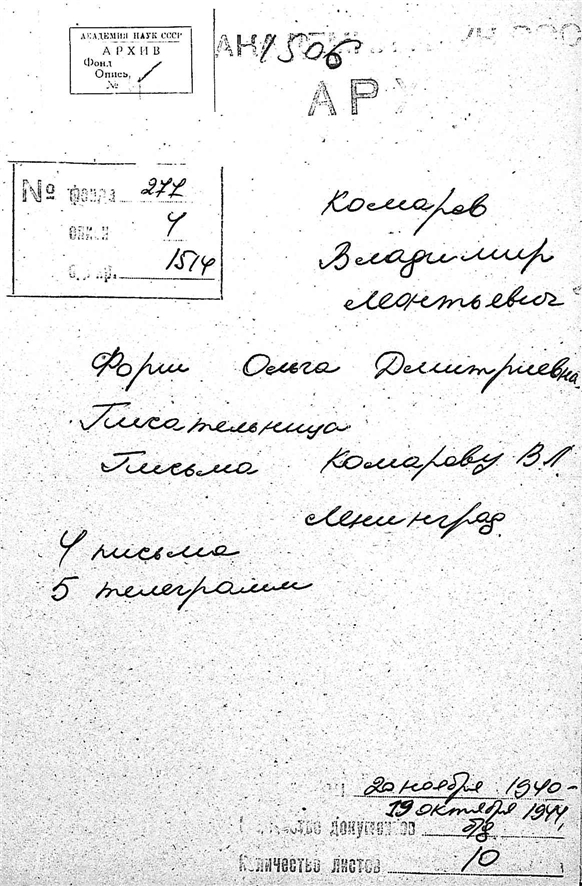 АКАДЕМИЯ НАУК СССР
АРХИВ
Фонд
Опись
№
1506
АР
№ фонда 277
описи 4
ед. хр. 1514
Комаров
Владимир
Леонтьевич
Форш Ольга Дмитриевна
Писательница
Письма Комарову В Л.
Ленинград
4 письма
5 телеграмм
20 ноября 1940 –
19 октября 1944,
документов б/д
Количество листов 10